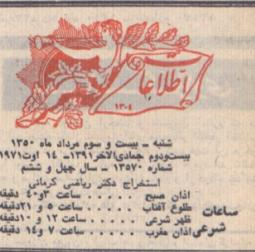 اطلاعات
۱۳۰۴
شنبه ـ بیست و سوم مرداد ماه ۱۳۵۰
بیست‌ودوم جمادی‌الاخر ۱۳۹۱ـ ۱۴ اوت ۱۹۷۱
شماره ۱۳۵۷۰ ـ سال چهل و ششم
استخراج دکتر ریاضی کرمانی
ساعات شرعی
اذان صبح . . . . . ساعت ۳و۴۰ دقیقه
طلوع آفتاب . . . . . ساعت ۵ و ۲۱دقیقه
ظهر شرعی . . . . . ساعت ۱۲ و ۱۰دقیقه
اذان مغرب . . . . . ساعت ۷ و ۱۴ دقیقه